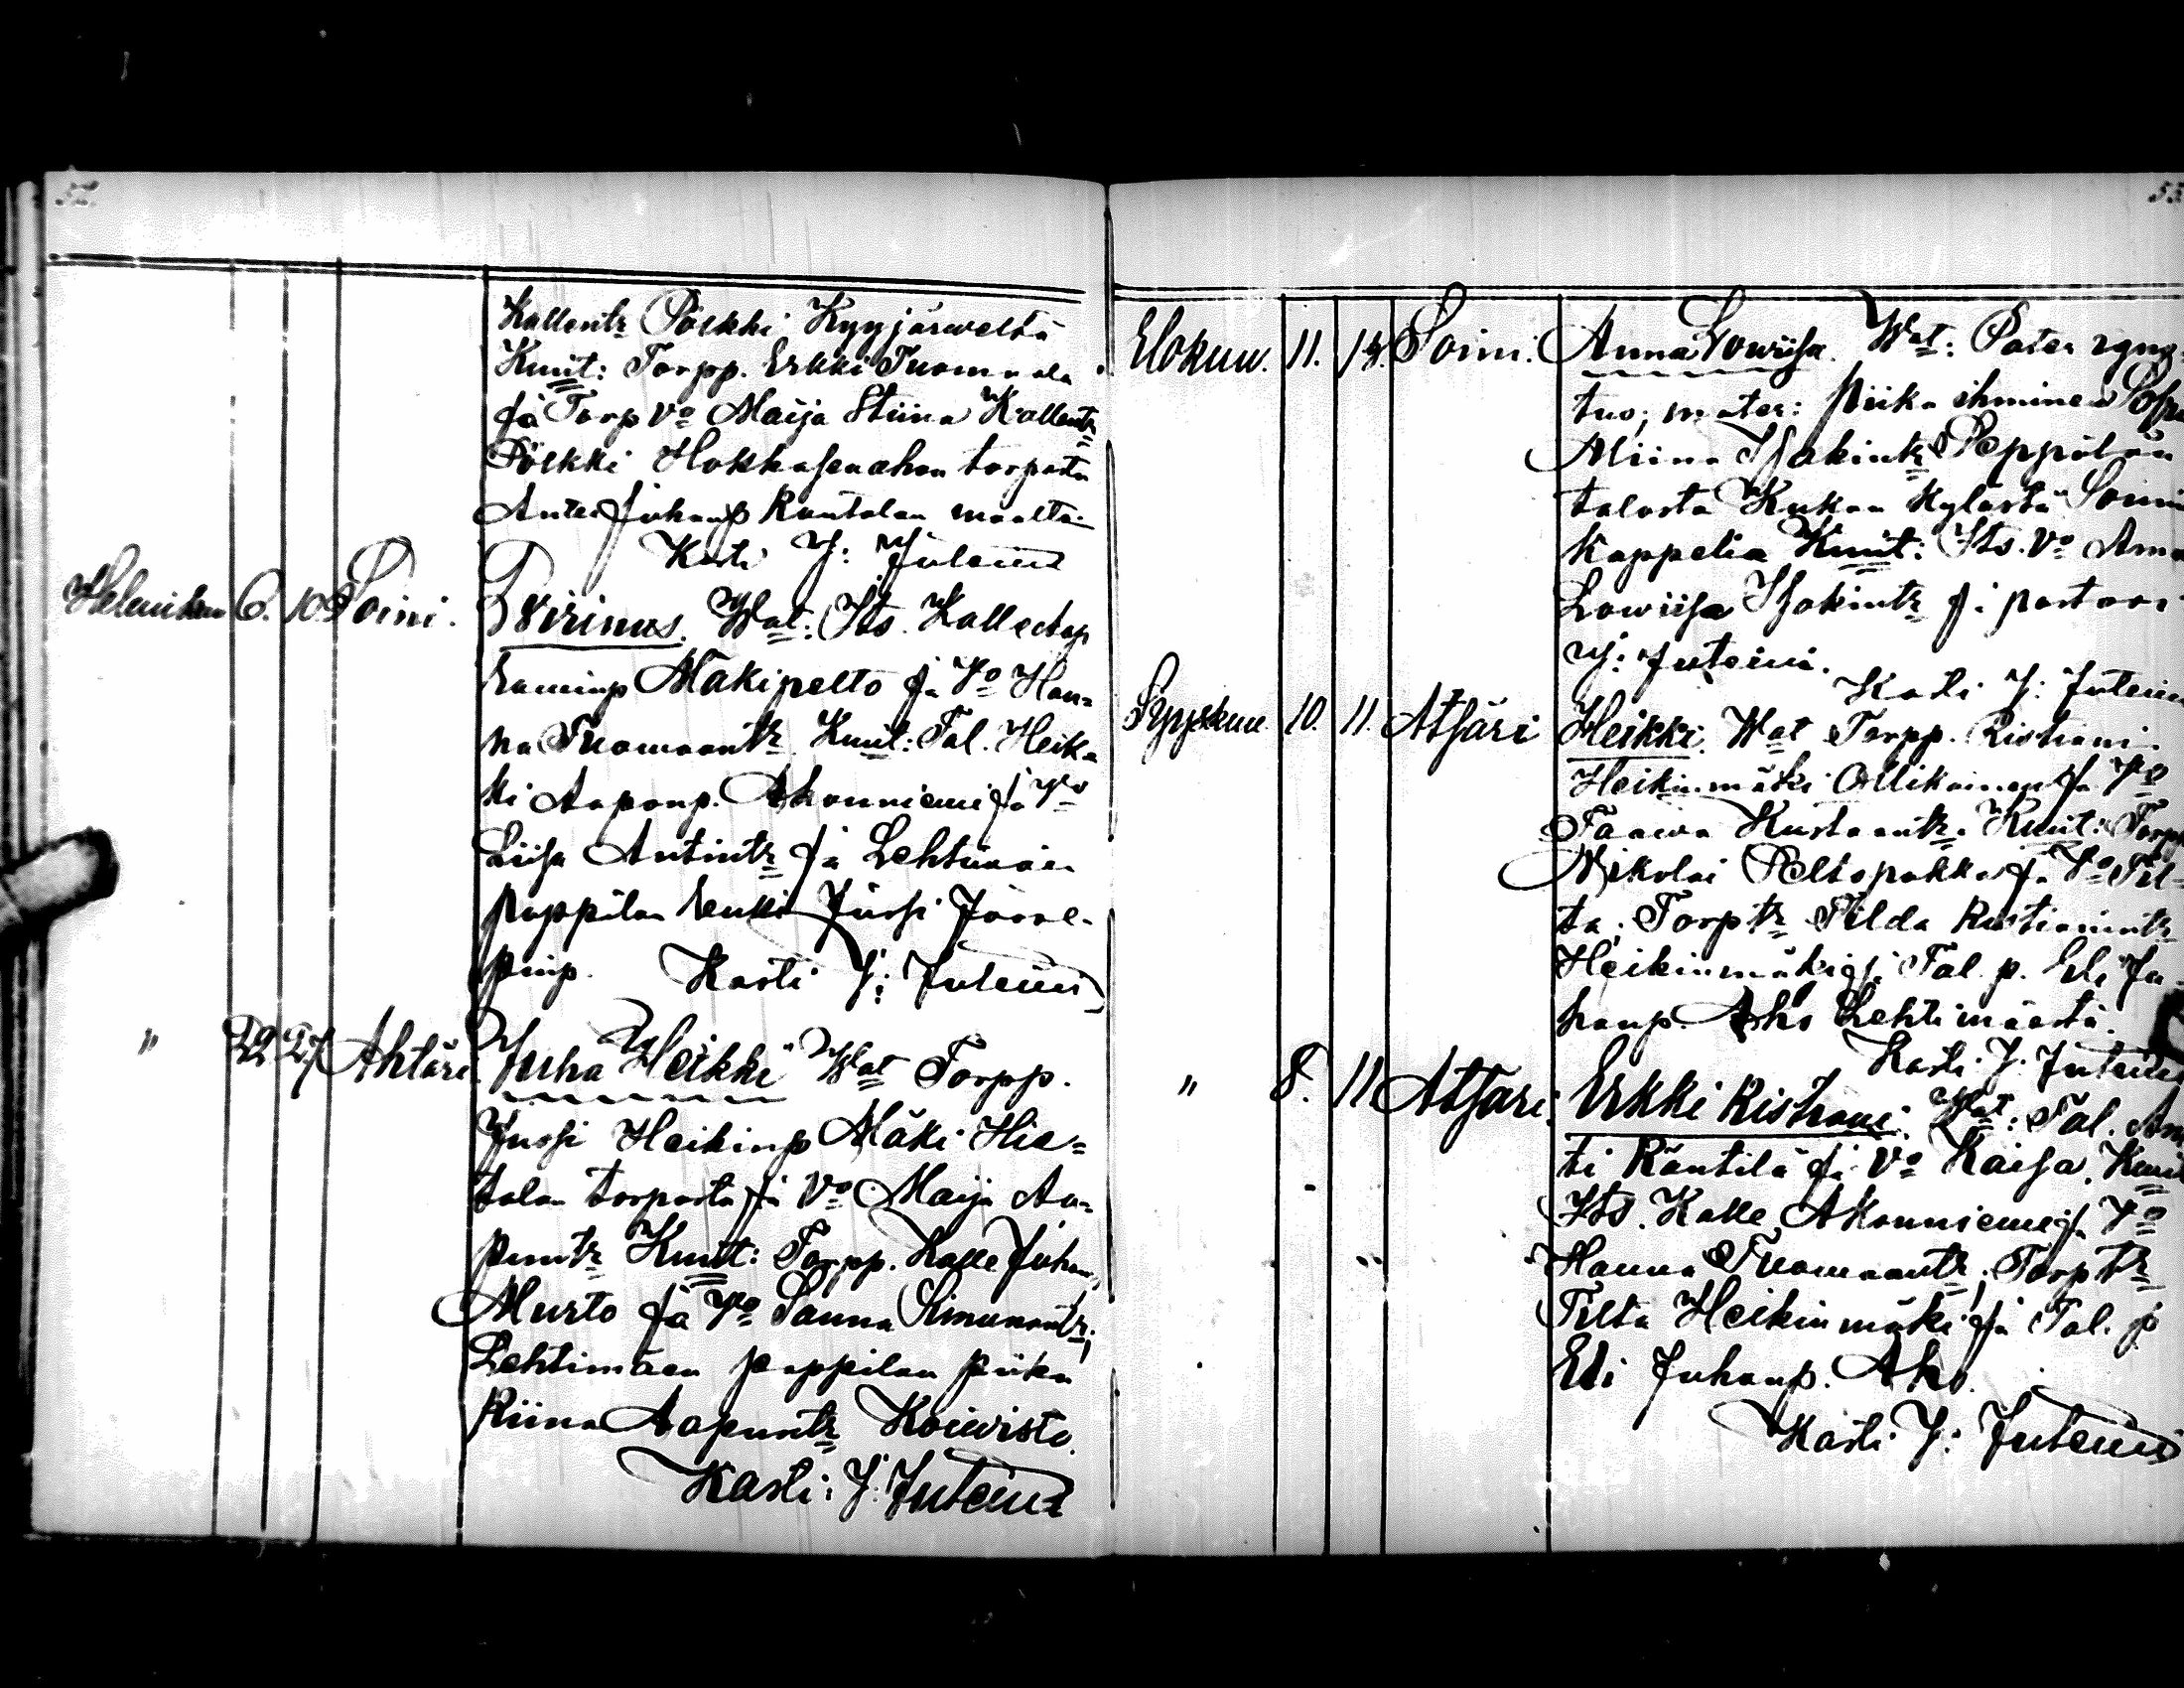 52.
Kallentr Pölkki Kyyjärweltä
Kmit: Torpp. Erkki Tuomaala
ja Torp vo Maija Stiina Kallentr
Pölkki Hokkasenahon torpasta
Antes Juhanp Rantalan maalta
Kasti J: Juteini
Helmikuu 6. 10 Soini. Wirinus. Wat: Its. Kalle Aap
Mäkipelto ja Vo Han=
na Tuomaantr. Kmit: Tal. Heik=
ki Aaponp. Ahonniemi ja Vo
Liisa Antintr ja Lehtimäen
pappilan renki Jussi Jaae-
pinp. Kasti J: Juteini
" 22 27 Ahtäri. Juha Heikki Wat Torpp.
Jussi Heikinp Mäki Hie=
talan torpasta ja Vo Maija Aa=
puntr Kmit: Torpp. Kalle Juhanp
Murto ja Vo Sanna Simunantr;
Lehtimäen pappilan piika
Riina Aapuntr Koiwisto.
Kasti: J: Juteini
53
Elokuu. 11. 14. Soini. Anna Lowiisa. Wat: Pater
tus; mater: Piika ihminen Sofia
Miina Isakintr Peppilän
talosta Kukon kylästä Soinin
kappelia Kmit: Its. Vo Anna
Lowiisa Isakintr ja pastori
J: Juteini.
Kasti J: Juteini
Syyskuu. 10. 11. Atsäri Heikki. Wat Torpp. Ristiani
Heikinmäki Ollikainen ja Vo
Taawa Kustaantr. Kmit: Torpp
Nikolai Peltopakka ja Vo Til-
ta; Torp tr Tilda Ristianintr
Heikinmäki ja Tal. p. Eli Ju-
hanp. Aho Lehtimäestä.
Kasti J: Juteini
" 8. 11 Atsäri. Erkki Ristiani. Wat: Tal. An
ti Räntilä ja Vo Kaisa. Kmit
Its. Kalle Akonniemi ja Vo
Hanna Tuomaantr; Torp tr
Tilta Heikinmäki ja Tal. p
Eli Juhanp. Aho.
Kasti J: Juteini